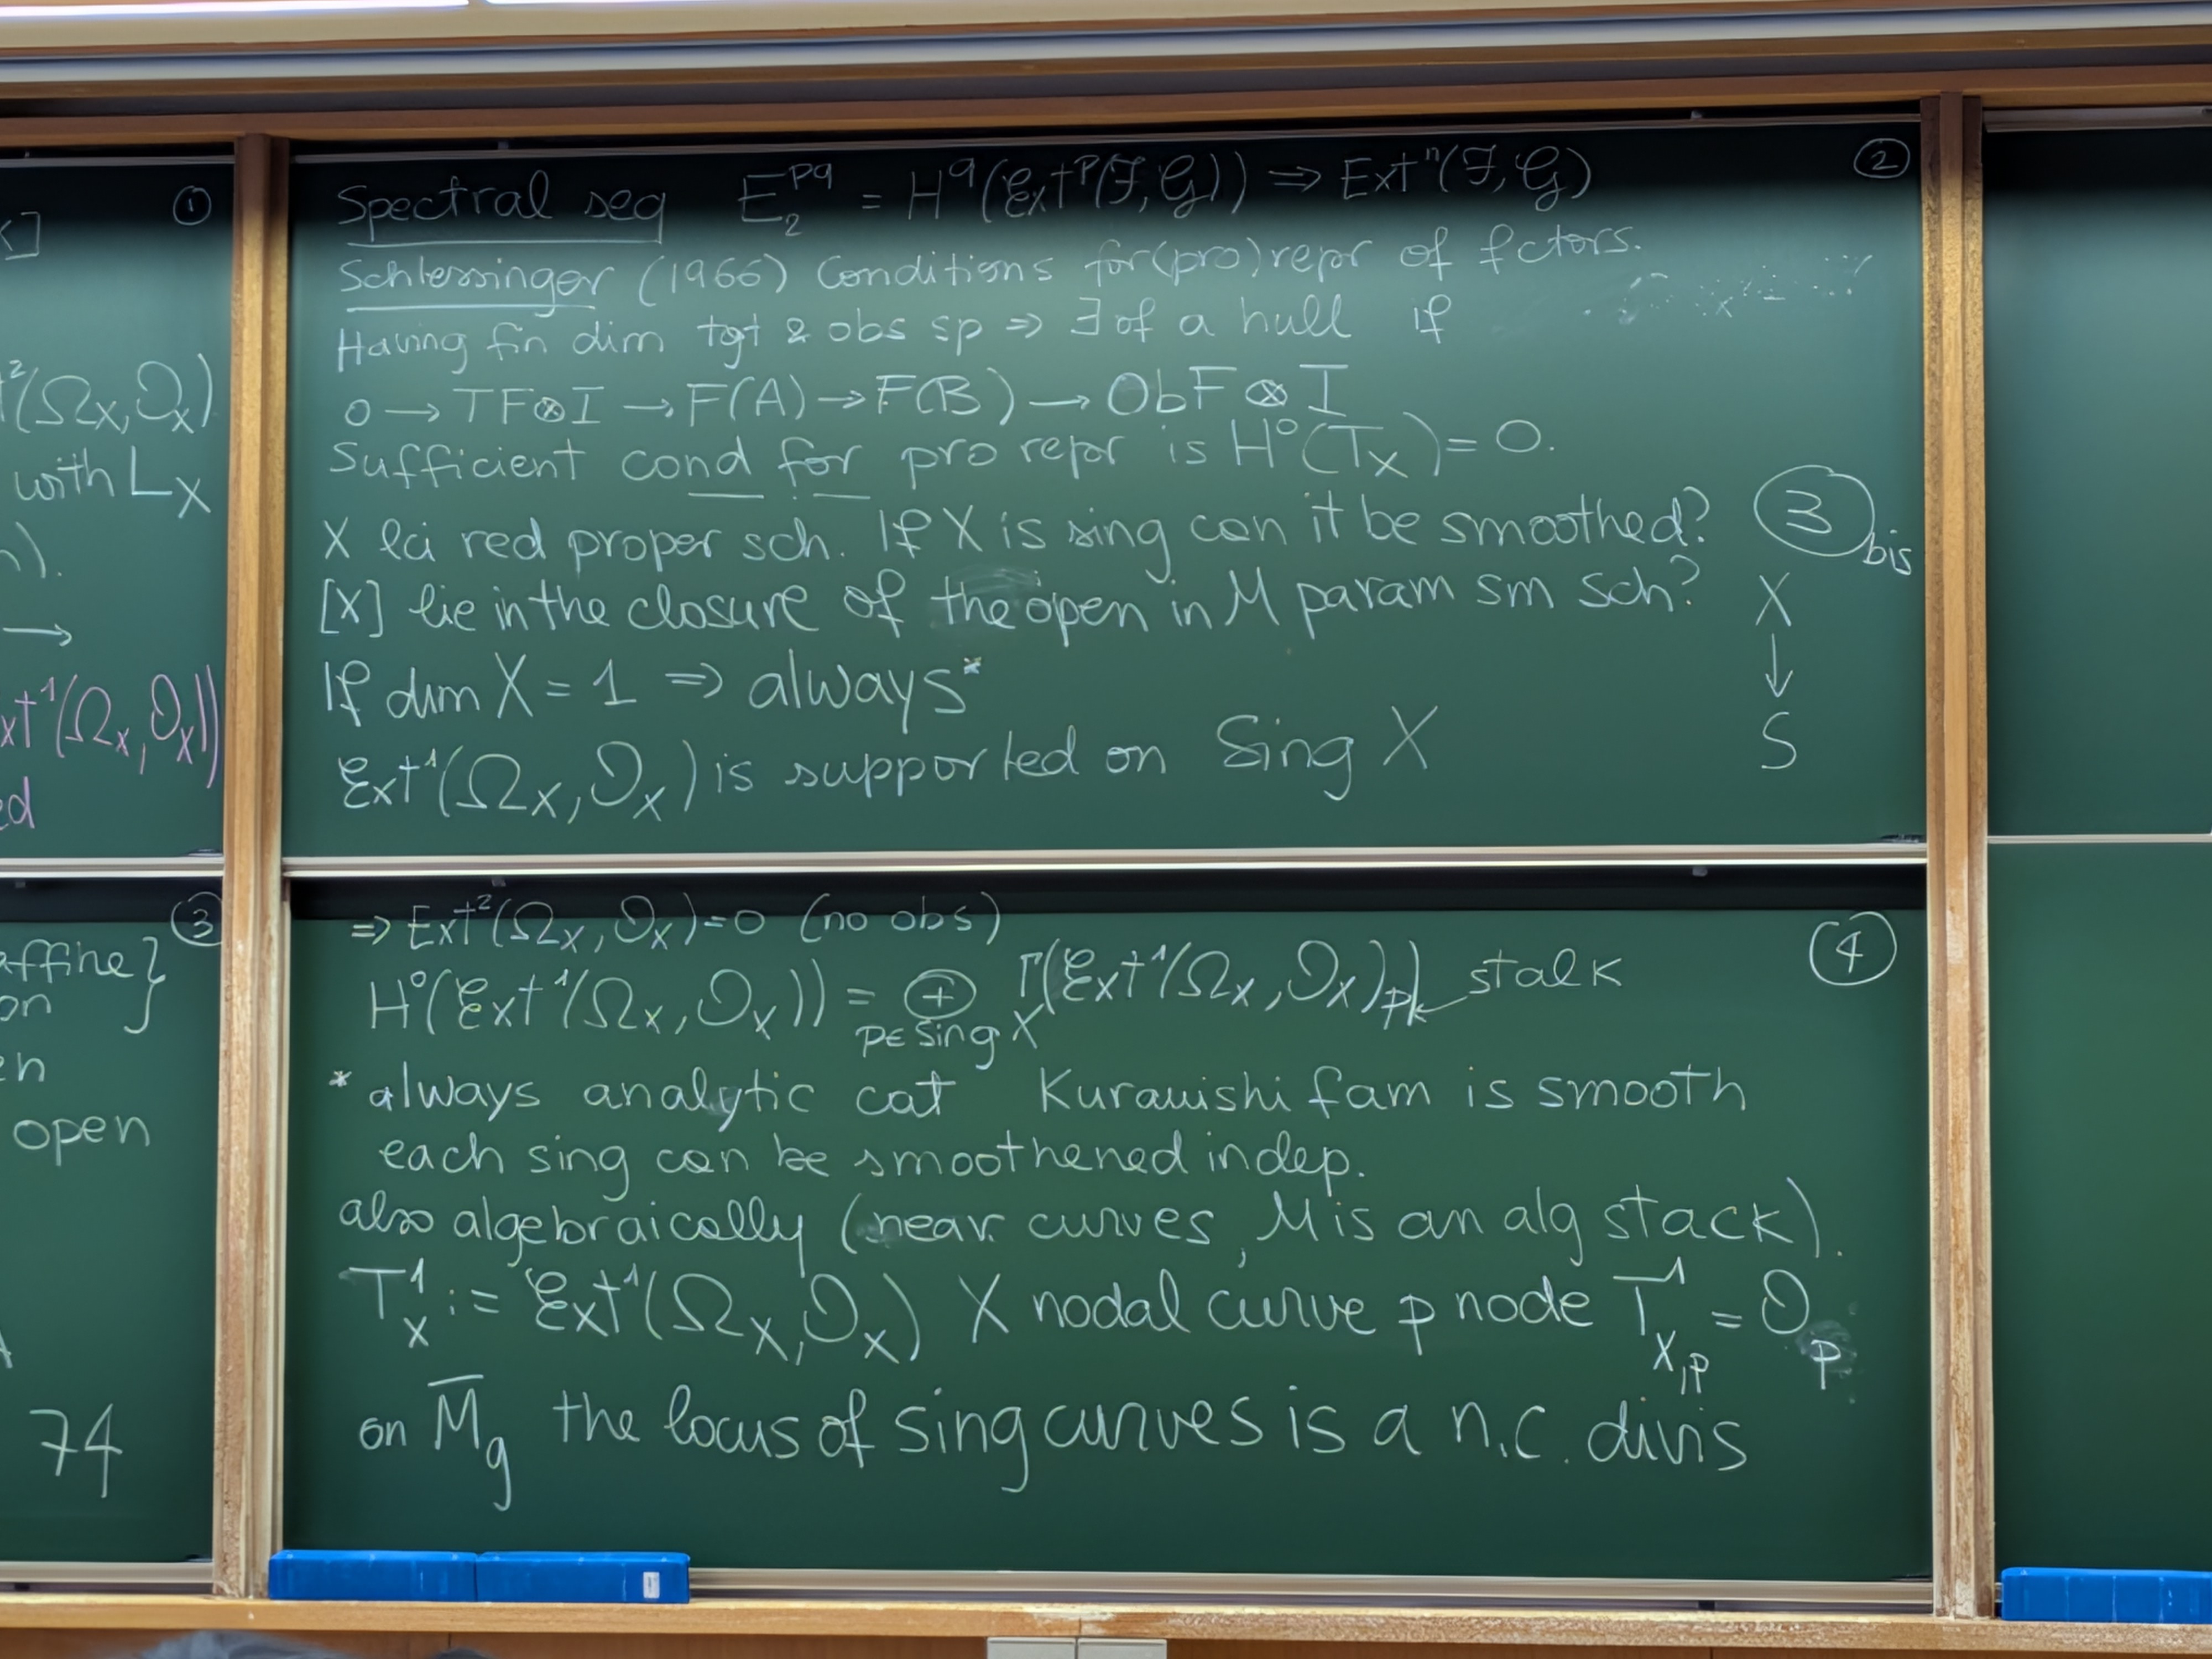 ①
K]
²(Ω_X, O_X)
with L_X
).
→
xt¹(Ω_X, O_X))
ed
③
affine}
on
en
open
74
②
Spectral seq E_2^{pq} = H^q(ℰxt^p(ℱ,𝒢)) ⇒ Ext^n(ℱ,𝒢)
Schlessinger (1966) Conditions for (pro) repr of fctors.
Having fin dim tgt & obs sp ⇒ ∃ of a hull if
0 → TF⊗I → F(A) → F(B) → ObF ⊗ I
Sufficient cond for pro repr is H⁰(T_X) = 0.
X lci red proper sch. If X is sing can it be smoothed? ③ bis
[X] lie in the closure of the open in M param sm sch?
X
↓
S
If dim X = 1 ⇒ always*
ℰxt¹(Ω_X, O_X) is supported on Sing X
④
⇒ Ext²(Ω_X, O_X) = 0 (no obs)
H⁰(ℰxt¹(Ω_X, O_X)) = ⊕_{p∈Sing X} Γ(ℰxt¹(Ω_X, O_X)_p) ← stalk
* always analytic cat Kuranishi fam is smooth
each sing can be smoothened indep.
also algebraically (near curves, M is an alg stack).
T¹_X := ℰxt¹(Ω_X, O_X) X nodal curve p node T¹_{X,p} = O_p
on M̅_g the locus of sing curves is a n.c. divis